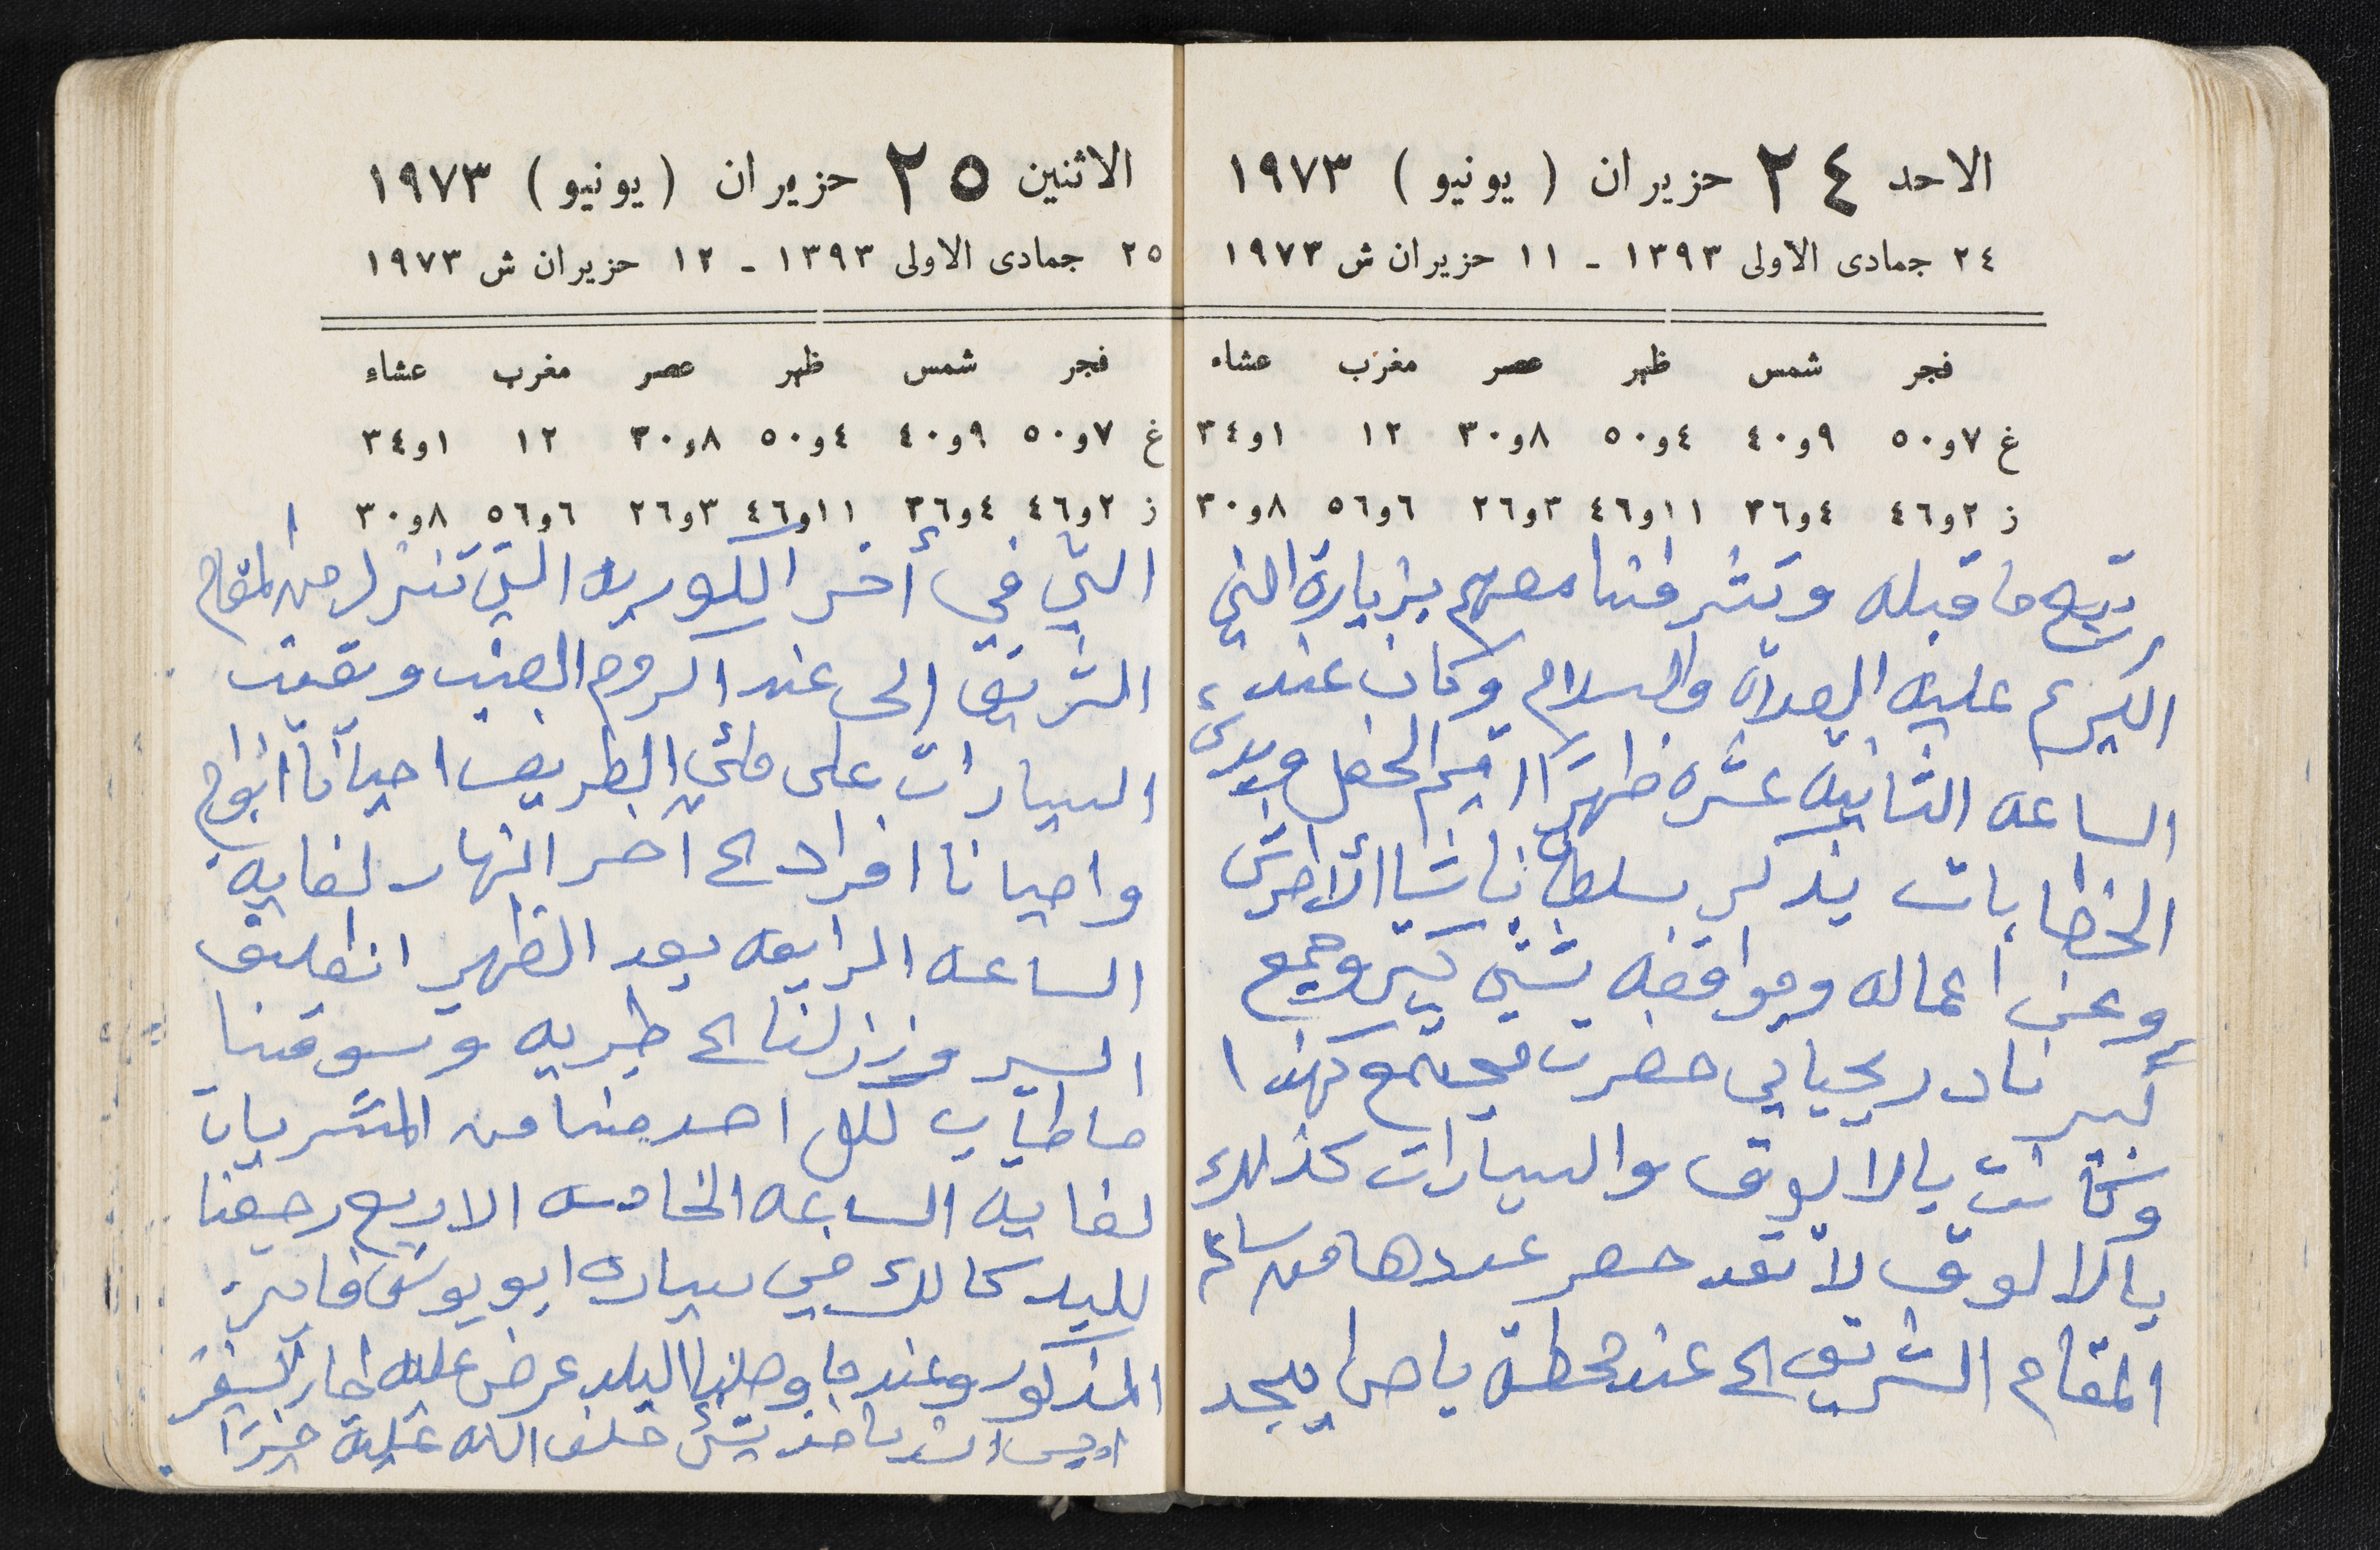 الاحد ٢٤ حزيران ( يونيو ) ١٩٧٣
٢٤ جمادى الاولى ١٣٩٣ - ١١ حزيران ش ١٩٧٣
فجر شمس ظهر عصر مغرب عشاء
غ ٧و٥٠ ٩و٤٠ ٤و٥٠ ٨و٣٠ ١٢ ١و٣٤
ز ٢و٤٦ ٤و٣٦ ١١و٤٦ ٣و٢٦ ٦و٥٦ ٨و٣٠
يتبع ما قبله وتشرفنا معهم بزيارة النبي
الكريم عليه الصلاة والسلام وكان عند
الساعه الثانيه عشره ظهرًا اقيم الحفل وبدئ
الخطابات بذكر سلطان باشا الأطرش
وعن أعماله ومواقفه بشيئ كبير وجمع
كبير نادر بحياتي حضرت مجتمع كهذا
وكانت بالالوف والسيارات كذلك
بالالوف لا تعد حصر عددها من
المقام الشريف الى عند محطة باص
الاثنين ٢٥ حزيران ( يونيو ) ١٩٧٣
٢٥ جمادى الاولى ١٣٩٣ - ١٢ حزيران ش ١٩٧٣
فجر شمس ظهر عصر مغرب عشاء
غ ٧و٥٠ ٩و٤٠ ٤و٥٠ ٨و٣٠ ١٢ ١و٣٤
ز ٢و٤٦ ٤و٣٦ ١١و٤٦ ٣و٢٦ ٦و٥٦ ٨و٣٠
التي في أخر الكوربه التي تنزل من المقام
الشريف إلى عند اكروم العنب وبقيت
السيارات على الطريق احياناً ازواج
واحيانا افراد الى آخر النهار لغاية
الساعه الرابعه بعد الظهر انطلق
السير ونزلنا الى طبريه وتسوقنا
ما طاب لكل احد منا من المشتريات
لغاية الساعه الخامسه الا ربع رجعنا
للبلد كالك في سيارة ابو يوسف فايز
المذكور وعندما وصلنا البلد عرض عليه اجار السفر
ياخذ شئ خلف الله عليه خيرًا